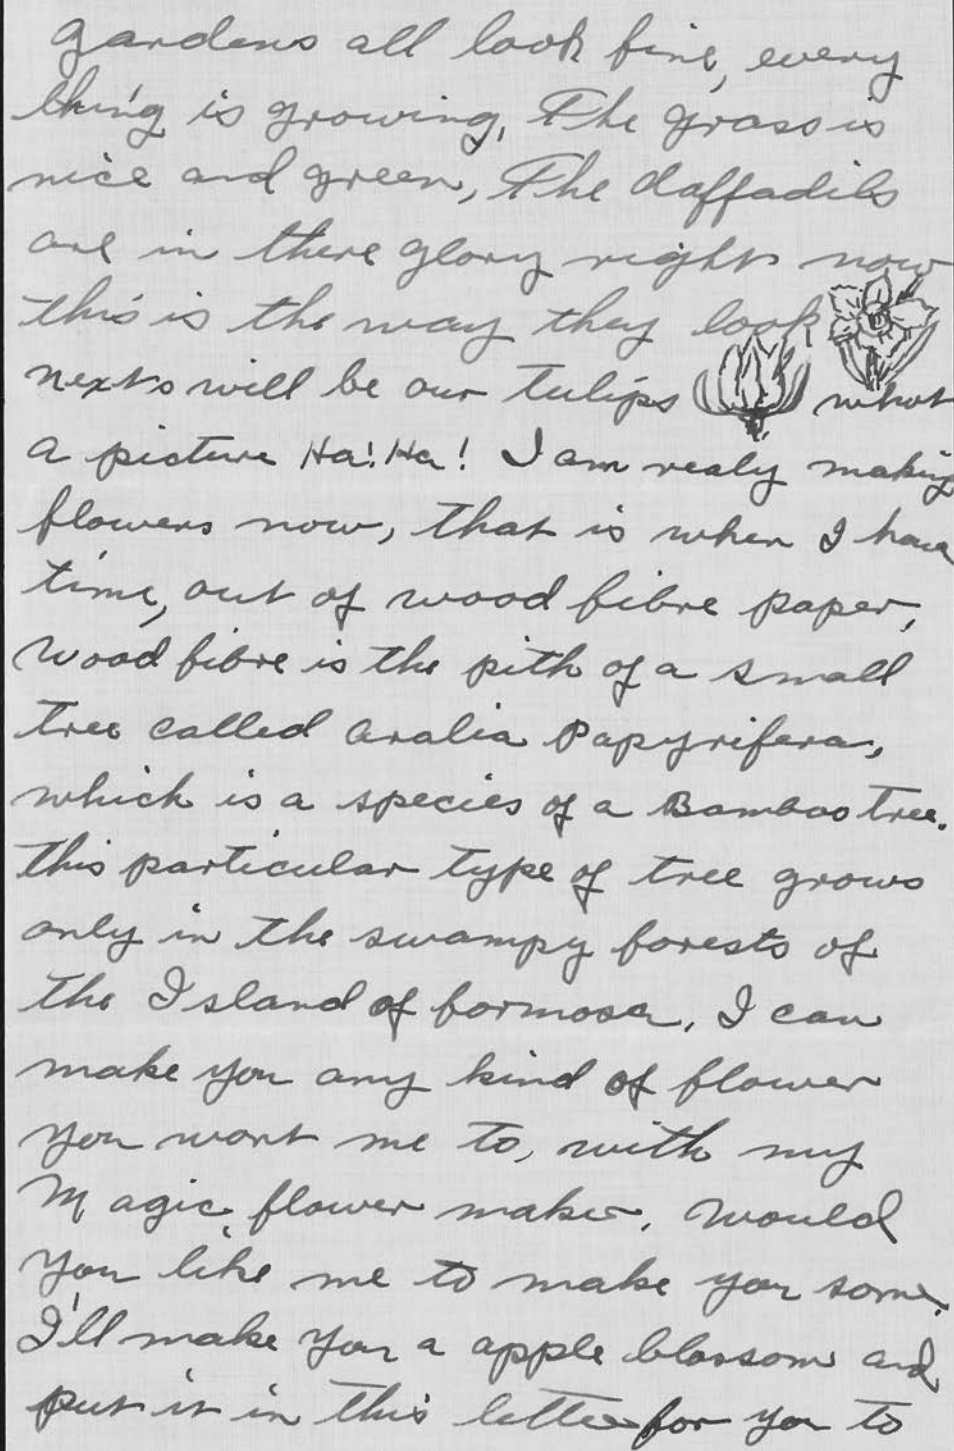 gardens all look fine, every
thing is growing, The grass is
nice and green, The daffadils
are in there glory right now
this is the way they look
next will be our tulips what
a picture Ha! Ha! I am realy making
flowers now, that is when I have
time, out of wood fibre paper,
wood fibre is the pith of a small
tree called aralia Papyrifera,
which is a species of a Bamboo tree.
this particular type of tree grows
only in the swampy forests of
the Island of formosa. I can
make you any kind of flower
you want me to, with my
Magic flower maker. Would
you like me to make you some.
I'll make you a apple blossom and
put it in this letter for you to